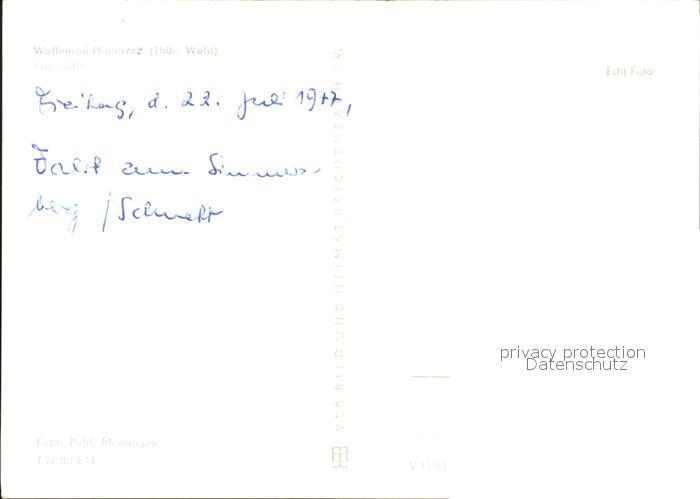 Waffenrod-Hinterrod (Thür. Wald)
Echt Foto
Freitag, d. 22. Juli 1977,
Fahrt zum Simmers-
berg / Schnett
VEB BILD UND HEIMAT REICHENBACH I. V.
privacy protection
Datenschutz
Foto: Pahl, Meiningen
EVP 0,20 M
V 11 50